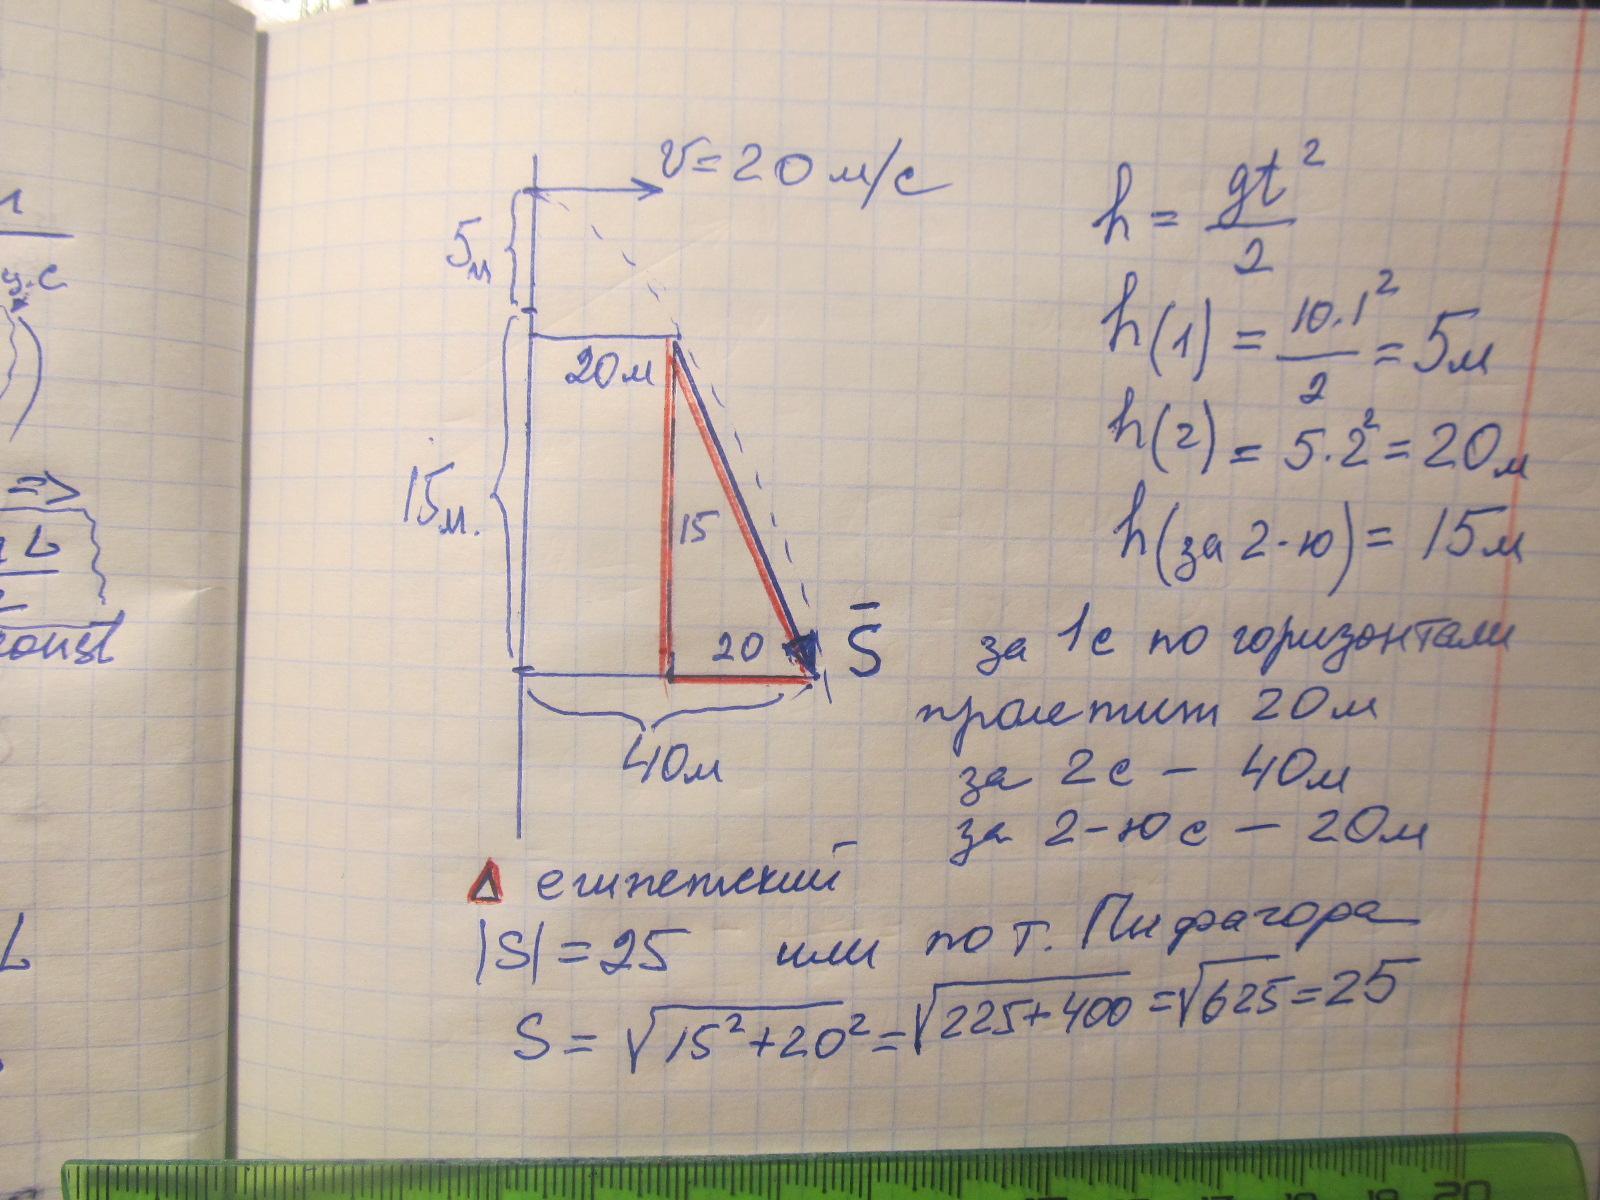 v = 20 м/с
5м
20м
15м.
15
20
S̄
40м
h = gt²/2
h(1) = 10·1²/2 = 5м
h(2) = 5·2² = 20м
h(за 2-ю) = 15м
за 1с по горизонтали
пролетит 20м
за 2с – 40м
за 2-ю с – 20м
Δ египетский
|S| = 25 или по т. Пифагора
S = √15²+20² = √225+400 = √625 = 25
=>
L
20